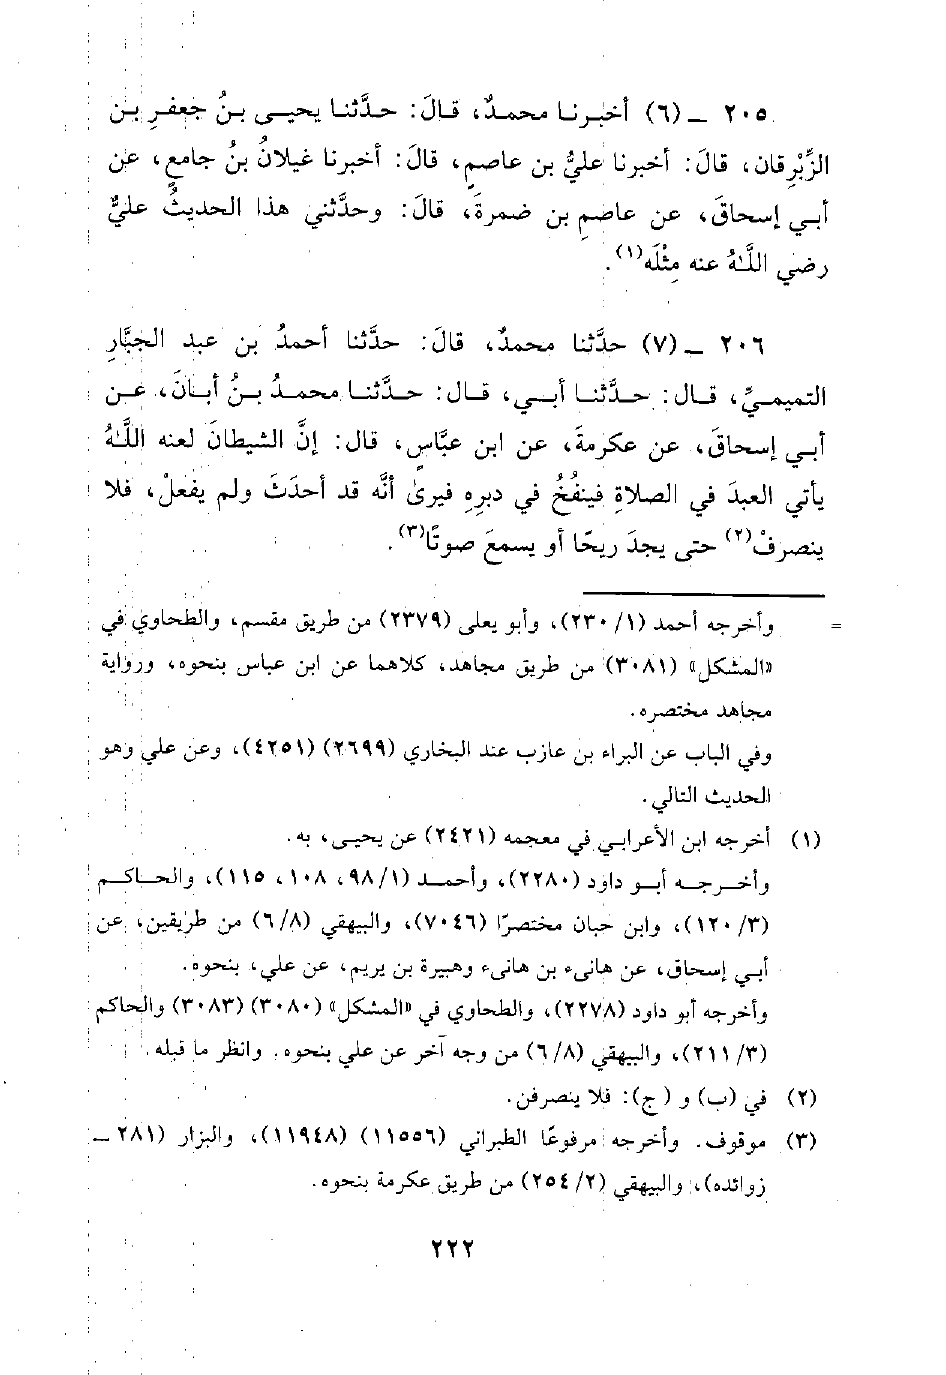 ٢٠٥ ـ (٦) أخبرنا محمدٌ، قالَ: حدَّثنا يحيى بنُ جعفرِ بن
الزِّبْرِقان، قالَ: أخبرنا عليُّ بن عاصمٍ، قالَ: أخبرنا غيلانُ بنُ جامعٍ، عن
أبي إسحاقَ، عن عاصمِ بن ضمرةَ، قالَ: وحدَّثني هذا الحديثُ عليٌّ
رضي اللَّهُ عنه مِثْلَه(١).
٢٠٦ ـ (٧) حدَّثنا محمدٌ، قالَ: حدَّثنا أحمدُ بن عبد الجبَّارِ
التميميُّ، قال: حدَّثنا أبي، قال: حدَّثنا محمدُ بنُ أبانَ، عن
أبي إسحاقَ، عن عكرمةَ، عن ابن عبَّاسٍ، قال: إنَّ الشيطانَ لعنه اللَّهُ
يأتي العبدَ في الصلاةِ فينفُخُ في دبرِهِ فيرىٰ أنَّه قد أحدَثَ ولم يفعلْ، فلا
ينصرفْ(٢) حتى يجدَ ريحًا أو يسمعَ صوتًا(٣).
= وأخرجه أحمد (١/ ٢٣٠)، وأبو يعلى (٢٣٧٩) من طريق مقسم، والطحاوي في
«المشكل» (٣٠٨١) من طريق مجاهد، كلاهما عن ابن عباس بنحوه، ورواية
مجاهد مختصره.
وفي الباب عن البراء بن عازب عند البخاري (٢٦٩٩) (٤٢٥١)، وعن علي وهو
الحديث التالي.
(١) أخرجه ابن الأعرابي في معجمه (٢٤٢١) عن يحيى، به.
وأخرجه أبو داود (٢٢٨٠)، وأحمد (١/ ٩٨، ١٠٨، ١١٥)، والحاكم
(٣/ ١٢٠)، وابن حبان مختصرًا (٧٠٤٦)، والبيهقي (٨/ ٦) من طريقين، عن
أبي إسحاق، عن هانىء بن هانىء وهبيرة بن يريم، عن علي، بنحوه.
وأخرجه أبو داود (٢٢٧٨)، والطحاوي في «المشكل» (٣٠٨٠) (٣٠٨٣) والحاكم
(٣/ ٢١١)، والبيهقي (٨/ ٦) من وجه آخر عن علي بنحوه. وانظر ما قبله.
(٢) في (ب) و (ج): فلا ينصرفن.
(٣) موقوف. وأخرجه مرفوعًا الطبراني (١١٥٥٦) (١١٩٤٨)، والبزار (٢٨١ ـ
زوائده)، والبيهقي (٢/ ٢٥٤) من طريق عكرمة بنحوه.
٢٢٢